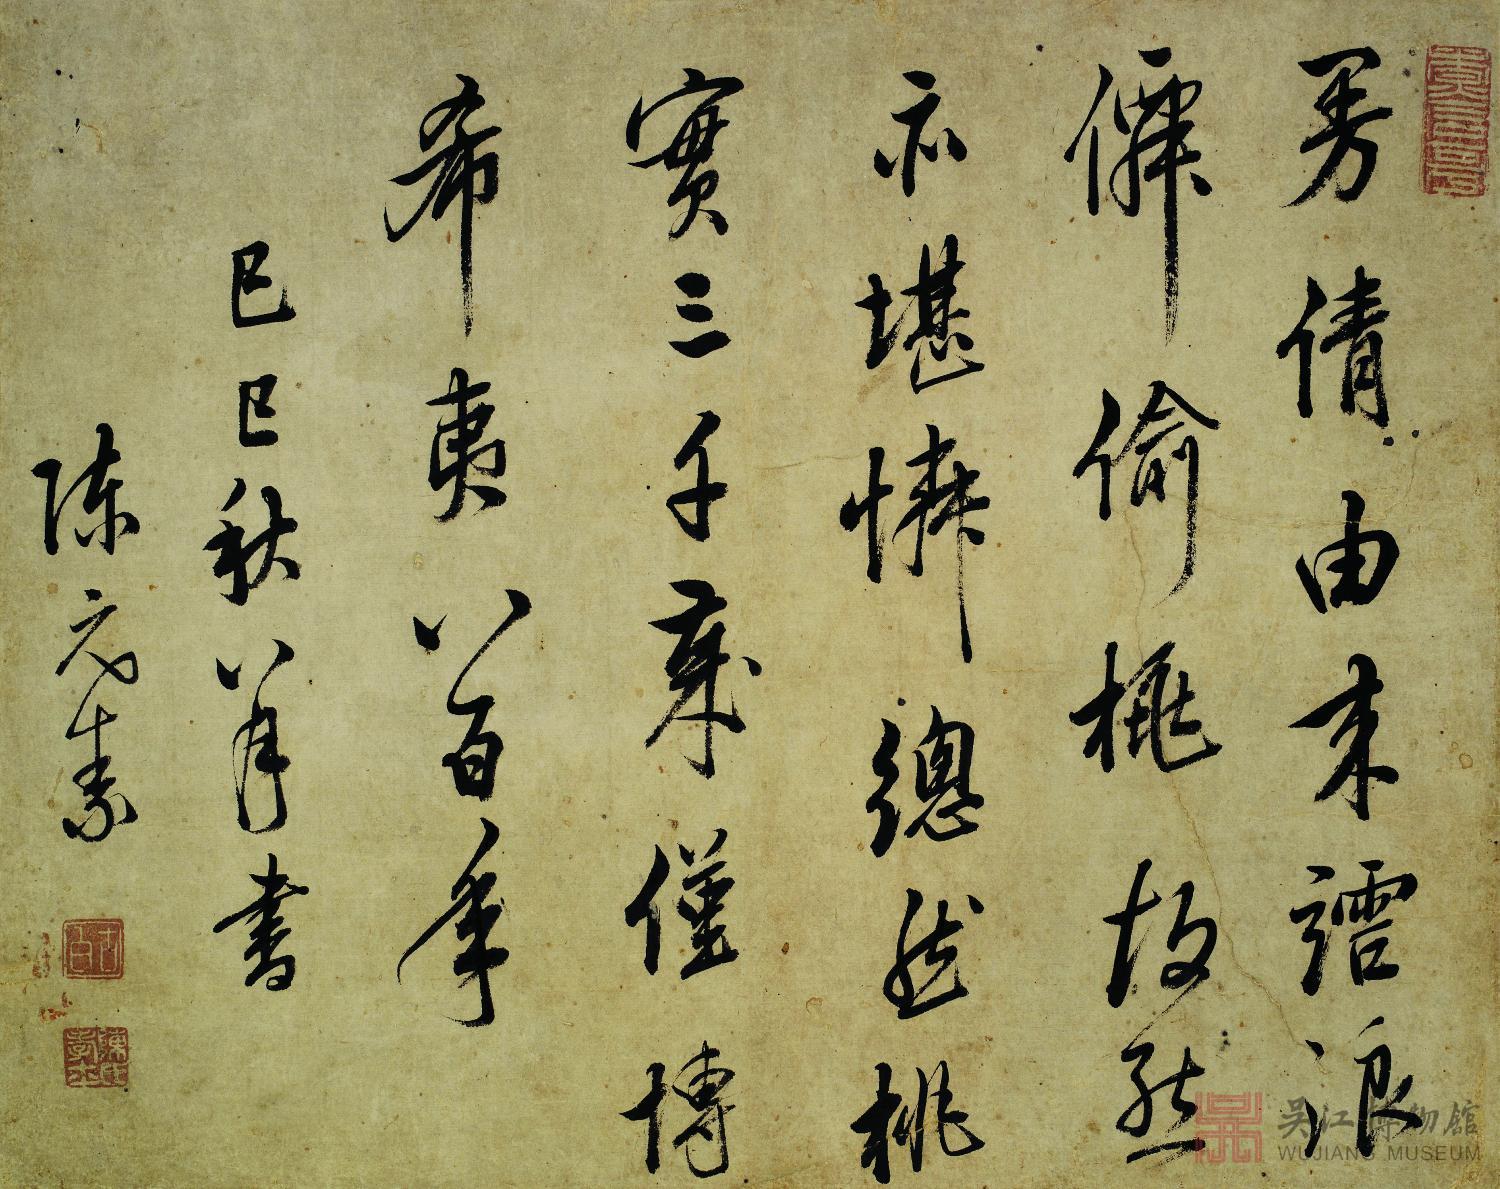 曼倩由来謔浪
僊偷桃故態
亦堪憐總然桃
實三千歲僅博
希夷八百年
己巳秋八月書
陳元素
吴江博物館
WUJIANG MUSEUM